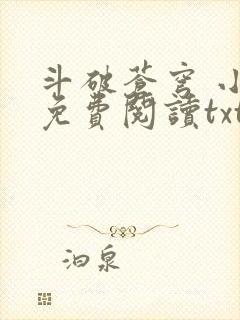 斗破蒼穹 小
免費閱讀txt
泊泉